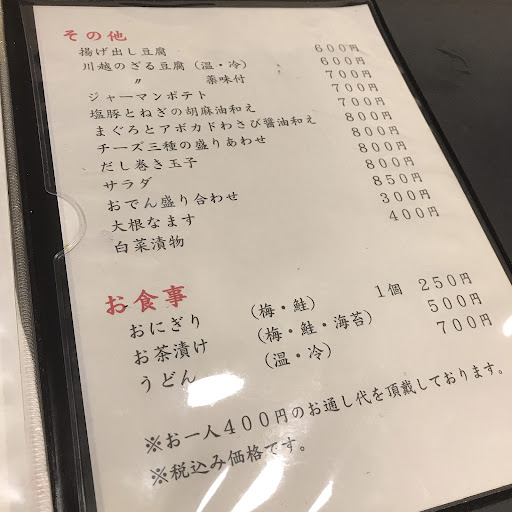 その他
揚げ出し豆腐 600円
川越のざる豆腐（温・冷） 600円
〃 薬味付 700円
ジャーマンポテト 700円
塩豚とねぎの胡麻油和え 700円
まぐろとアボカドわさび醤油和え 800円
チーズ三種の盛りあわせ 800円
だし巻き玉子 800円
サラダ 800円
おでん盛り合わせ 850円
大根なます 300円
白菜漬物 400円
お食事
おにぎり （梅・鮭） 1個 250円
お茶漬け （梅・鮭・海苔） 500円
うどん （温・冷） 700円
※お一人400円のお通し代を頂戴しております。
※税込み価格です。